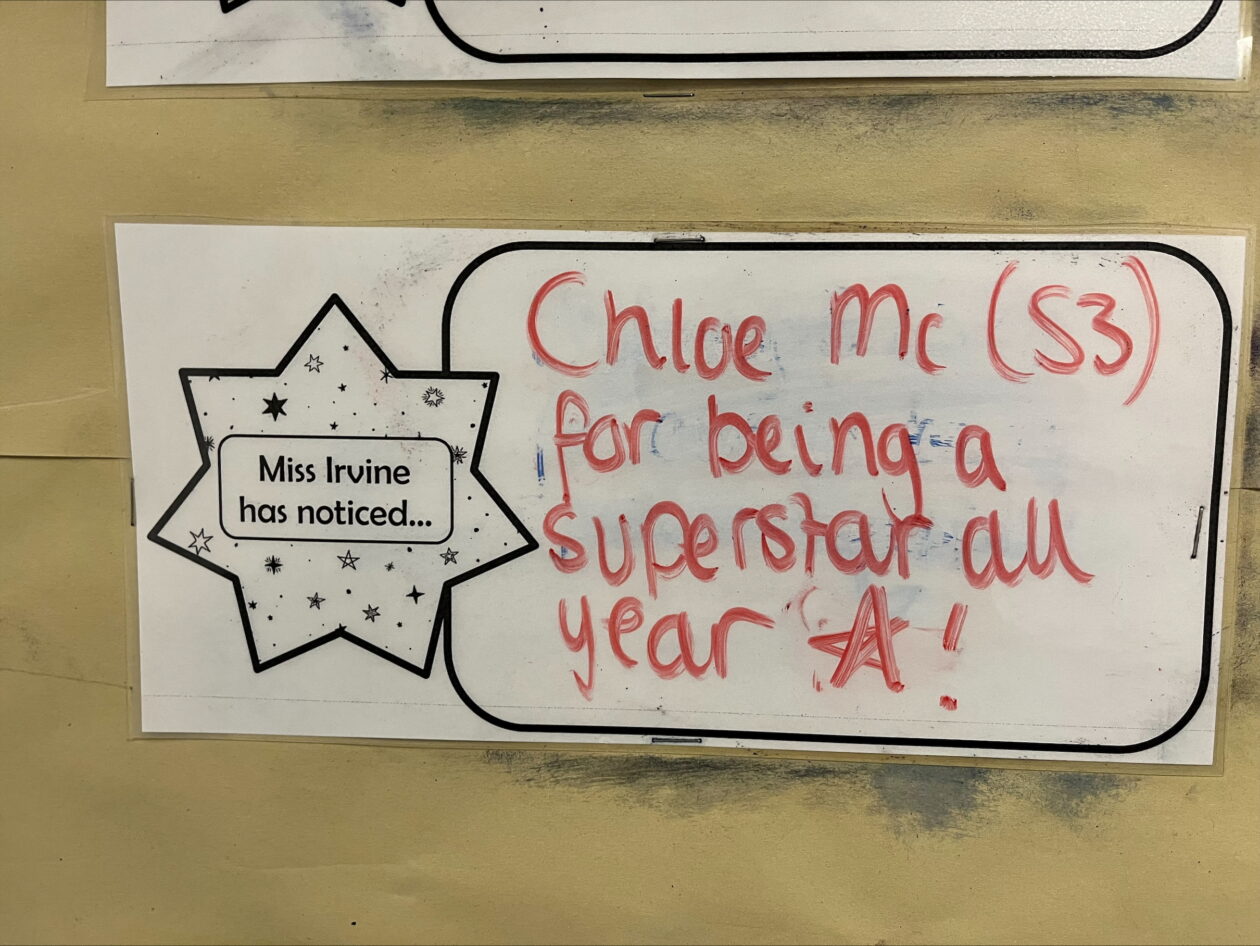 Miss Irvine
has noticed...
Chloe Mc (S3)
for being a
superstar all
year !